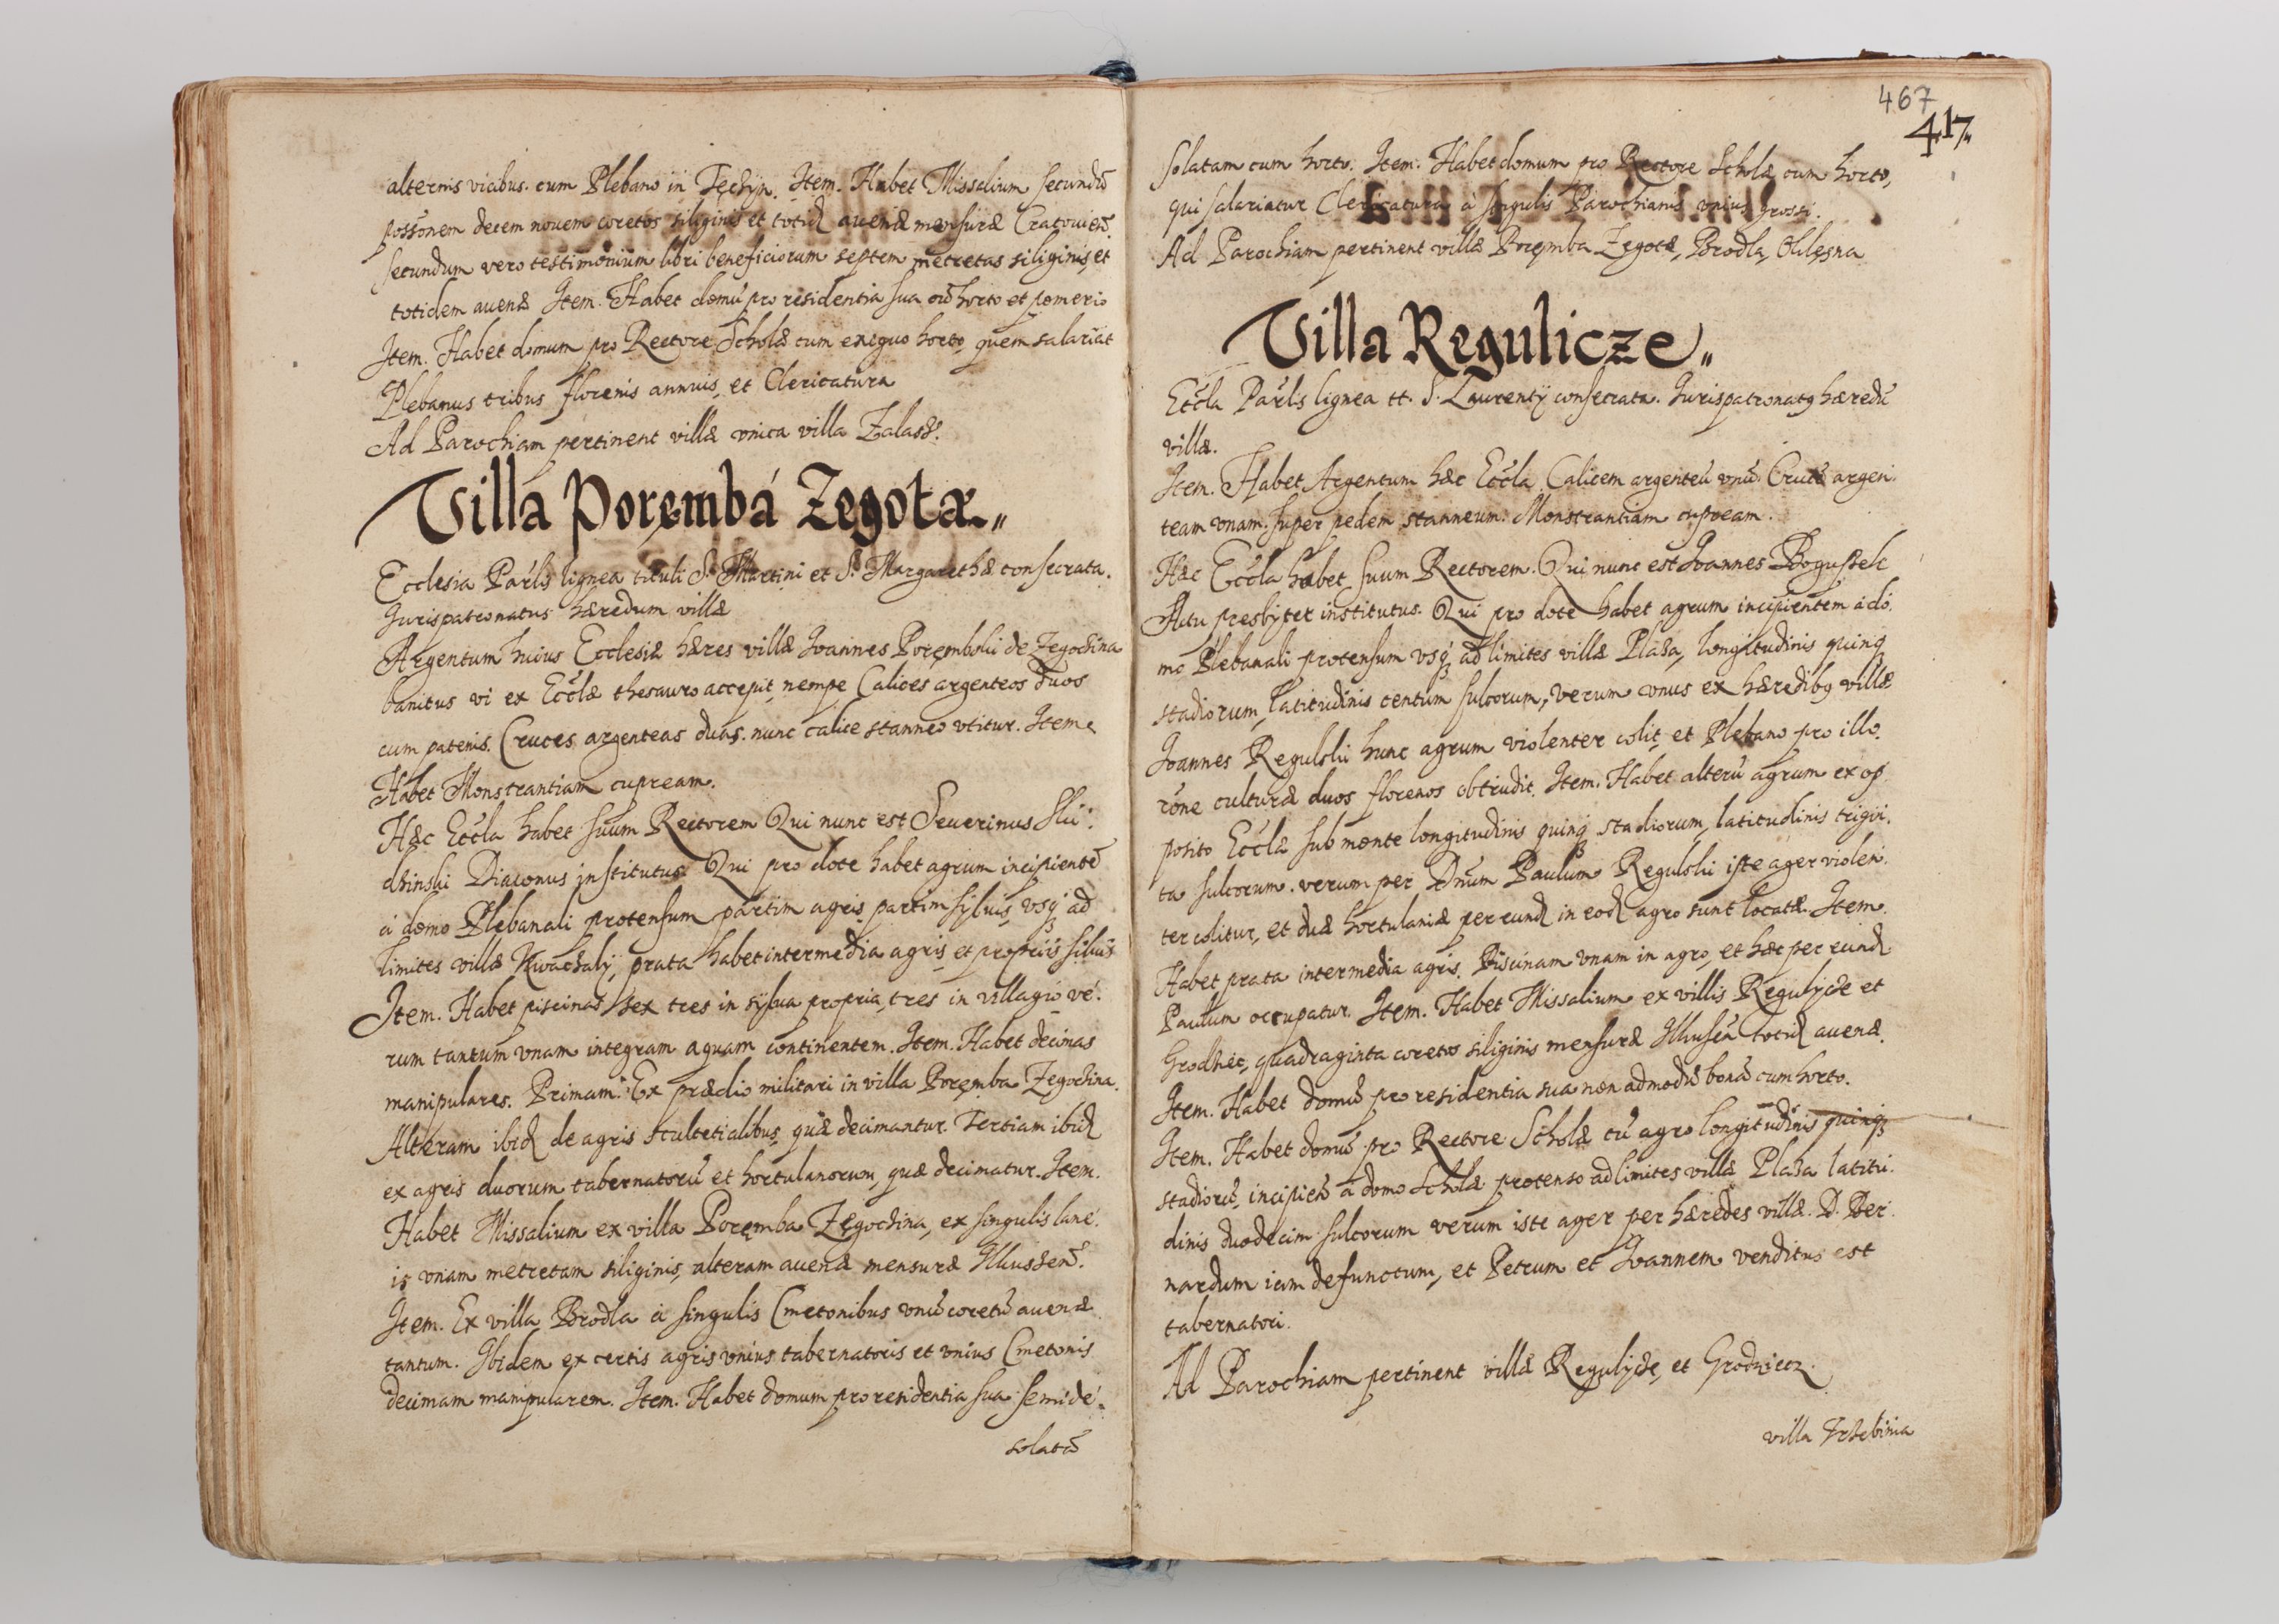 alternis vicibus. cum Plebano in Tęczyn. Item. Habet Missalium secundũ
possõnem decem novem coretos siliginis et totiđ avenæ mensuræ Cracouieñ.
secundum vero testimonium libri beneficiorum septem metretas siliginis, et
totidem auenæ Item. Habet domũ pro residentia sua cũ horto et pomerio
Item. Habet domum pro Rectore Scholæ cum exiguo horto, quem salariat
Plebanus tribus florenis annuis, et Clericatura
Ad Parochiam pertinent villæ vnica villa Zalass.
Villa Porembá Zegotæ„
Ecclesia Parlis lignea tituli S. Martini et S. Margarethæ consecrata.
Jurispatronatus hæredum villæ
Argentum huius Ecclesiæ hæres villæ Joannes Porembski de Zegoczina
banitus vi ex Ecclæ thesauro accepit, nempe Calices argenteos duos
cum patenis. Cruces argenteas duas. nunc calice stanneo vtitur. Item
Habet Monstrantiam cupream.
Hæc Eccla habet suum Rectorem Qui nunc est Seuerinus
Diaconus institutus. Qui pro dote habet agrum incipientẽ
à domo Plebanali protensum partim agris, partim syluis, vsq ad
limites villæ Kwaczaly, prata habet intermedia agris, et proprijs siluis
Item. Habet piscinas sex tres in sylua propria, tres in villagio ve.
rum tantum vnam integram aquam continentem. Item. Habet decimas
manipulares. Primam. Ex prædio militari in villa Poręmba Zegoczina.
Alteram ibiđ de agris scultetialibus, quæ decimantur. Tertiam ibiđ
ex agris duorum tabernatorũ et hortulanorum, quæ decimatur. Item.
Habet Missalium ex villa Poręmba Zegoczina, ex singulis lane.
is vnam metretam siliginis, alteram auenæ mensuræ Ilkusseñ.
Item. Ex villa Brodla à singulis Cmetonibus vnũ coretũ auenæ
tantum. Ibidem ex certis agris vnius tabernatoris et vnius Cmetonis
decimam manipularem. Item. Habet domum pro residentia sua semide.
solatã
467
417„
solatam cum horto. Item. Habet domum pro Rectore Scholæ cum horto,
qui salariatur Clericatura à singulis Parochianis vnius grossi.
Ad Parochiam pertinent villæ Poręmba Zegotæ, Brodla, Oklesna
Villa Regulicze„
Eccla Parlis lignea tt. S. Laurentÿ consecrata. Jurispatronatq hæredũ
villæ.
Item. Habet Argentum hæc Eccla. Calicem argenteũ vnũ. Crucẽ argen.
team vnam. super pedem stanneum. Monstrantiam cupream.
Hæc Eccla habet suum Rectorem. Qui nunc est Joannes
Actu presbyter institutus. Qui pro dote habet agrum incipientem à do.
mo Plebanali protensum vsq ad limites villæ Plaza, longitudinis quinq
stadiorum, latitudinis centum sulcorum, verum vnus ex hæredibq villæ
Joannes Regulski hunc agrum violenter colit, et Plebano pro illo.
rõne culturæ duos florenos obtrudit. Item. Habet alterũ agrum ex op.
posito Ecclæ sub monte longitudinis quinq stadiorum, latitudinis trigin.
ta sulcorum. verum per Dnũm Paulum Regulski iste ager violen.
ter colitur, et duæ hortulaniæ per eunđ in eođ agro sunt locatæ. Item.
Habet prata intermedia agris. Piscinam vnam in agro, et hæc per eunđ
Paulum occupatur. Item. Habet Missalium ex villis Regulycze et
Grodziec, quadraginta coretos siliginis mensuræ Ilkuseñ totiđ auenæ.
Item. Habet domũ pro residentia sua non admodũ bonã cum horto.
Item. Habet domũ pro Rectore Scholæ cũ agro longitudinis quinq
stadiorũ, incipiens à domo Scholæ protenso ad limites villæ Plaza latitu.
dinis duodecim sulcorum verum iste ager per hæredes villæ. D. Ber.
nardum iam defunctum, et Petrum et Joannem venditus est
tabernatori.
Ad Parochiam pertinent villæ Regulycze, et Grodziecz.
villa Trzebinia